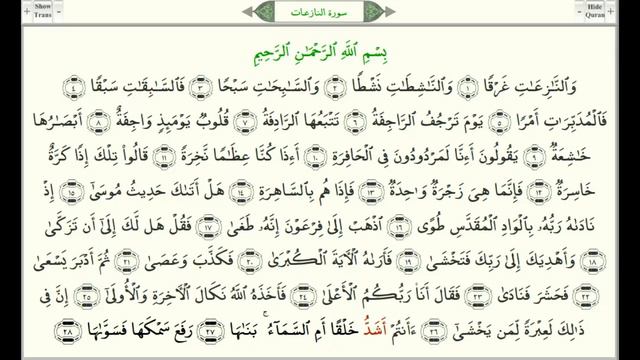 Show Trans
سورة النازعات
Hide Quran
بِسْمِ ٱللَّهِ ٱلرَّحْمَٰنِ ٱلرَّحِيمِ
وَٱلنَّٰزِعَٰتِ غَرْقًا ١ وَٱلنَّٰشِطَٰتِ نَشْطًا ٢ وَٱلسَّٰبِحَٰتِ سَبْحًا ٣ فَٱلسَّٰبِقَٰتِ سَبْقًا ٤
فَٱلْمُدَبِّرَٰتِ أَمْرًا ٥ يَوْمَ تَرْجُفُ ٱلرَّاجِفَةُ ٦ تَتْبَعُهَا ٱلرَّادِفَةُ ٧ قُلُوبٌ يَوْمَئِذٍ وَاجِفَةٌ ٨ أَبْصَٰرُهَا
خَٰشِعَةٌ ٩ يَقُولُونَ أَءِنَّا لَمَرْدُودُونَ فِى ٱلْحَافِرَةِ ١٠ أَءِذَا كُنَّا عِظَٰمًا نَّخِرَةً ١١ قَالُوا۟ تِلْكَ إِذًا كَرَّةٌ
خَاسِرَةٌ ١٢ فَإِنَّمَا هِىَ زَجْرَةٌ وَٰحِدَةٌ ١٣ فَإِذَا هُم بِٱلسَّاهِرَةِ ١٤ هَلْ أَتَىٰكَ حَدِيثُ مُوسَىٰٓ ١٥ إِذْ
نَادَىٰهُ رَبُّهُۥ بِٱلْوَادِ ٱلْمُقَدَّسِ طُوًى ١٦ ٱذْهَبْ إِلَىٰ فِرْعَوْنَ إِنَّهُۥ طَغَىٰ ١٧ فَقُلْ هَل لَّكَ إِلَىٰٓ أَن تَزَكَّىٰ
١٨ وَأَهْدِيَكَ إِلَىٰ رَبِّكَ فَتَخْشَىٰ ١٩ فَأَرَىٰهُ ٱلْءَايَةَ ٱلْكُبْرَىٰ ٢٠ فَكَذَّبَ وَعَصَىٰ ٢١ ثُمَّ أَدْبَرَ يَسْعَىٰ
٢٢ فَحَشَرَ فَنَادَىٰ ٢٣ فَقَالَ أَنَا۠ رَبُّكُمُ ٱلْأَعْلَىٰ ٢٤ فَأَخَذَهُ ٱللَّهُ نَكَالَ ٱلْءَاخِرَةِ وَٱلْأُولَىٰٓ ٢٥ إِنَّ فِى
ذَٰلِكَ لَعِبْرَةً لِّمَن يَخْشَىٰٓ ٢٦ ءَأَنتُمْ أَشَدُّ خَلْقًا أَمِ ٱلسَّمَآءُ ۚ بَنَىٰهَا ٢٧ رَفَعَ سَمْكَهَا فَسَوَّىٰهَا ٢٨